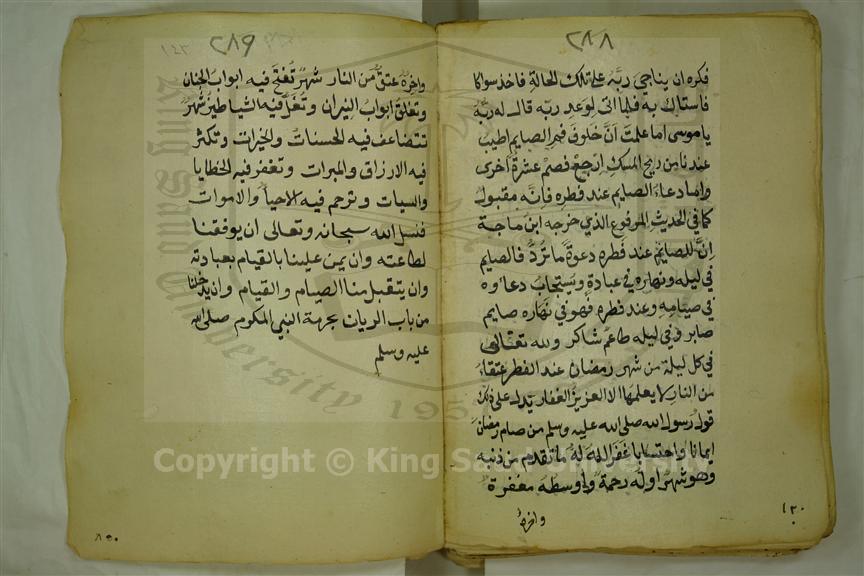 ٢٨٨
فكره ان يناجي ربه على تلك الحالة فاخذ سواكا
فاستاك به فلما اتى لوعد ربه قال له ربه
ياموسى اما علمت ان خلوف فم الصايم اطيب
عندنا من ريح المسك ارجع فصم عشرة اخرى
واما دعاء الصايم عند فطره فانه مقبول
كما في الحديث المرفوع الذي خرجه ابن ماجة
ان للصايم عند فطره دعوة ما ترد فالصايم
في ليله ونهاره في عبادة ويستجاب دعاوه
في صيامه وعند فطره فهو في نهاره صايم
صابر وفي ليله طاعم شاكر ولله تعالى
في كل ليلة من شهر رمضان عند الفطر عتقاء
من النار لا يعلمها الا العزيز الغفار يدل على ذلك
قول رسول الله صلى الله عليه وسلم من صام رمضان
ايمانا واحتسابا غفر الله له ما تقدم من ذنبه
وهو شهر اوله رحمة واوسطه مغفرة
واخره
١٢٠
٢٨٩
١٤٢
واخره عتق من النار شهر تفتح فيه ابواب الجنان
وتغلق ابواب النيران وتغل فيه الشياطين شهر
تتضاعف فيه الحسنات والخيرات وتكثر
فيه الارزاق والمبرات وتغفر فيه الخطايا
والسيات وترحم فيه الاحيا والاموات
فنسل الله سبحانه وتعالى ان يوفقنا
لطاعته وان يمن علينا بالقيام بعبادته
وان يتقبل منا الصيام والقيام وان يدخلنا
من باب الريان بحرمة النبي المكرم صلى الله
عليه وسلم
Copyright © King Saud University